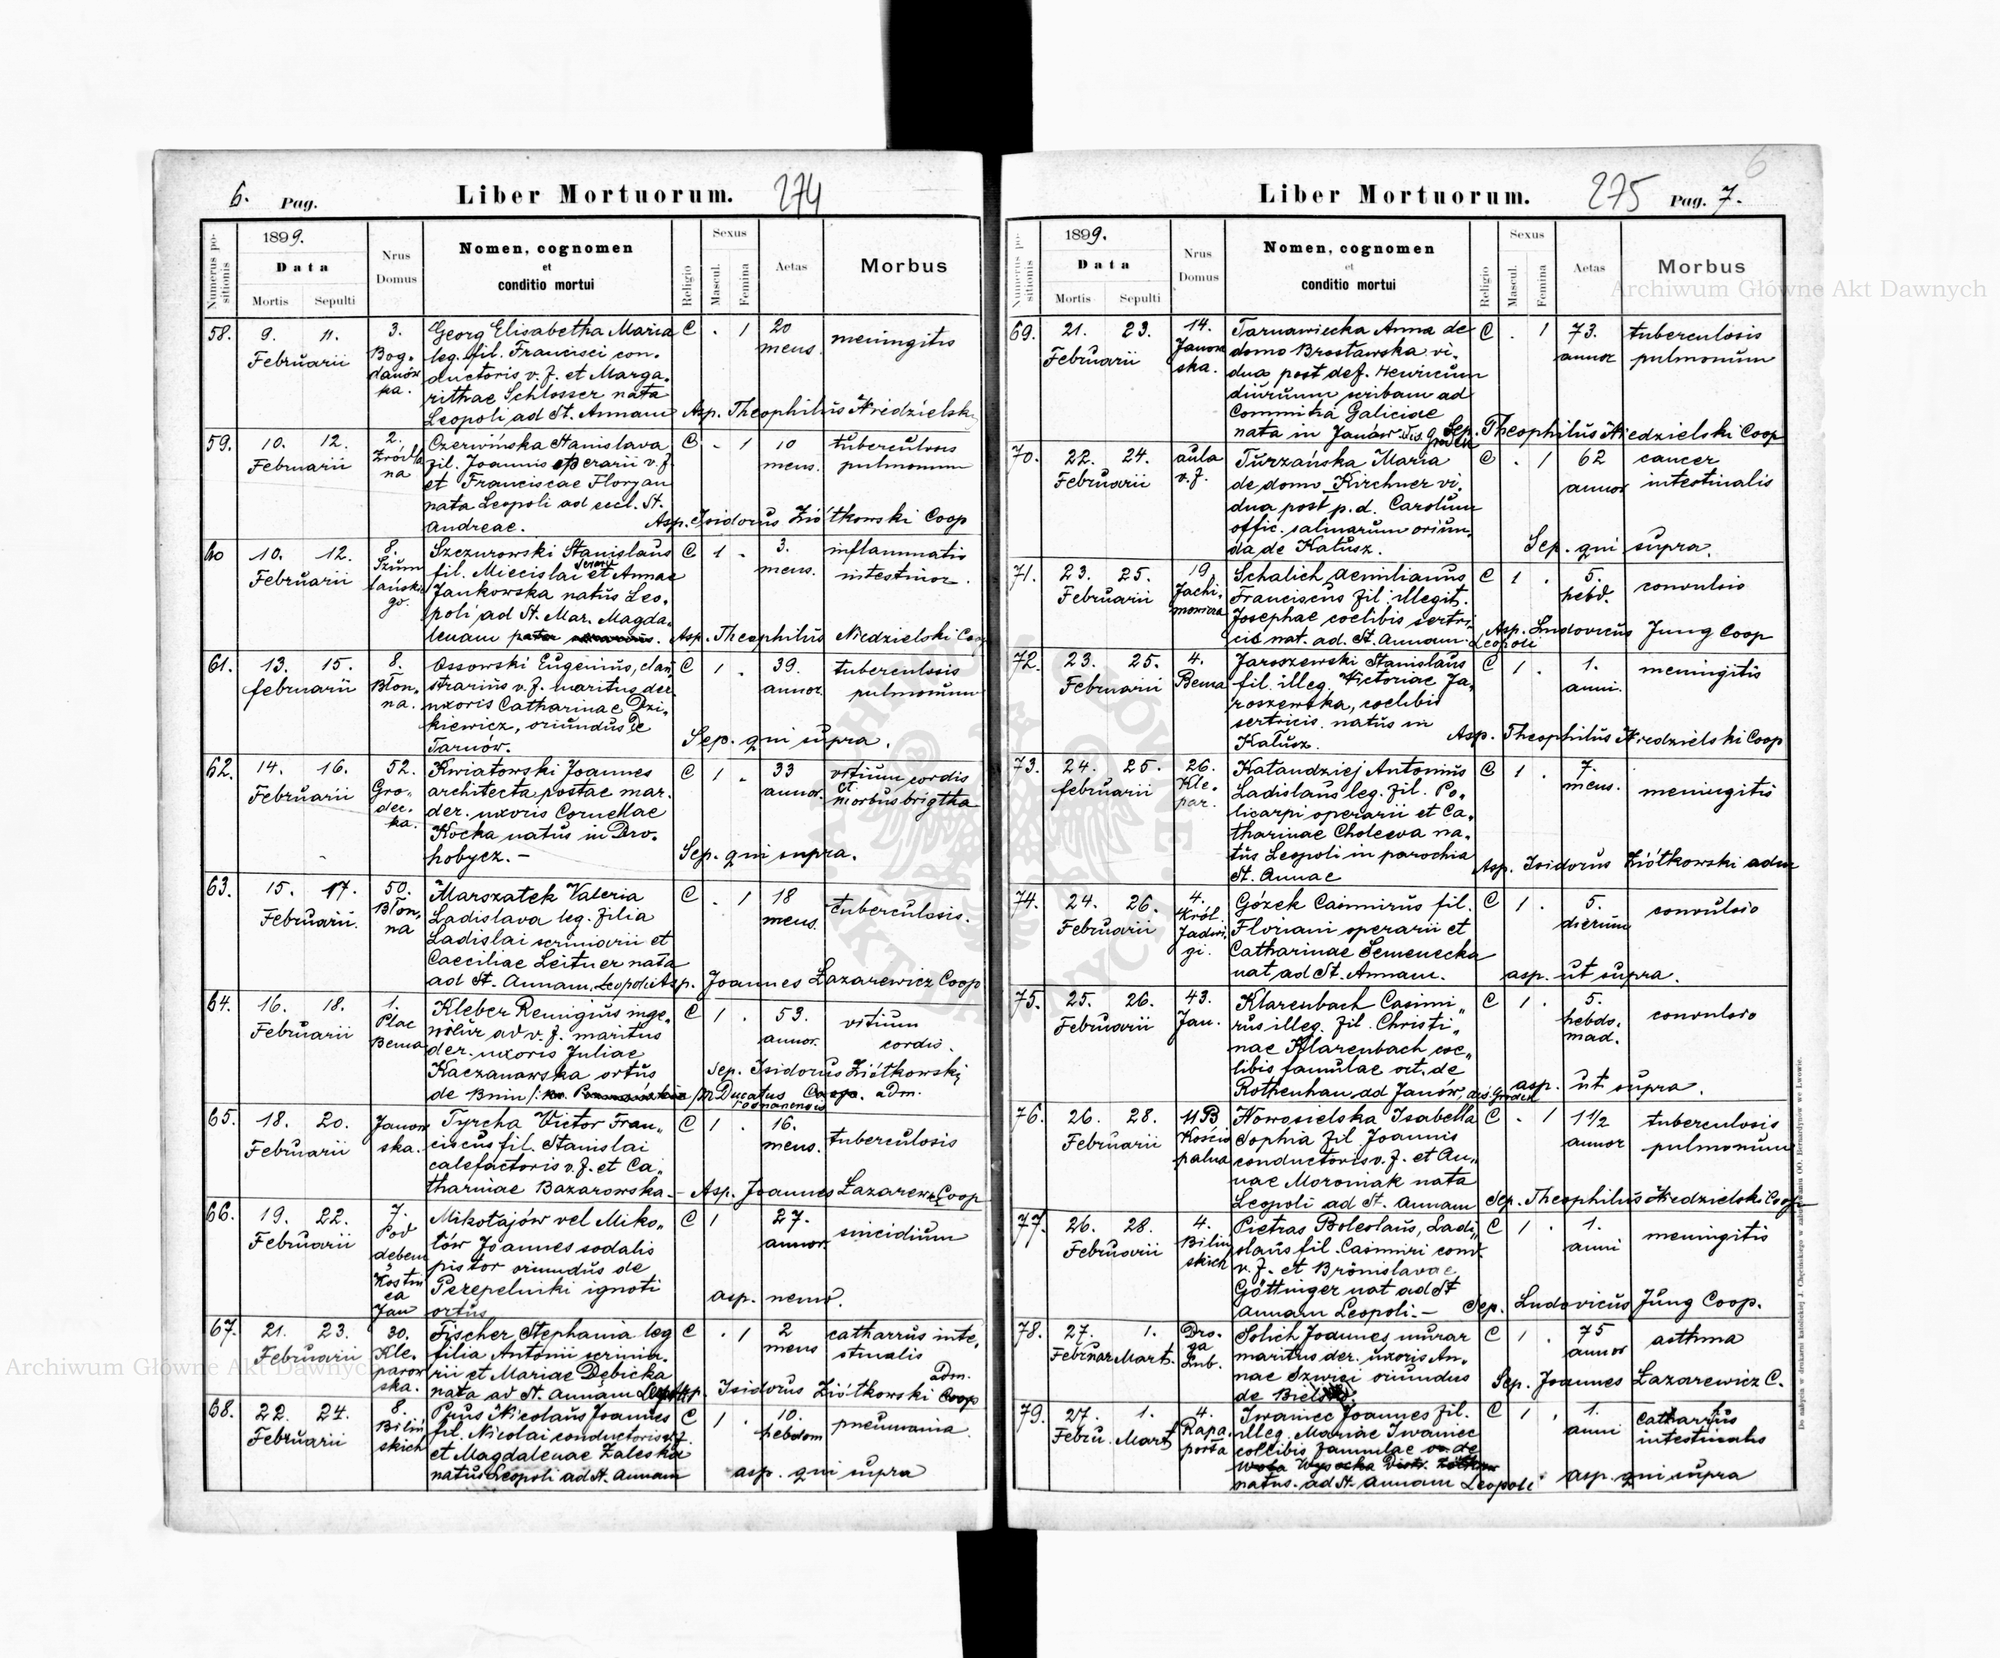 6. Pag. Liber Mortuorum. 274
Numerus positionis
1899.
Data
Mortis Sepulti
Nrus Domus
Nomen, cognomen
et
conditio mortui
Religio
Sexus
Mascul. Femina
Aetas
Morbus
58. 9. 11. Februarii
3. Bogdanówka.
Georg Elisabetha Maria C . 1 20 mens. meningitis
leg. fil. Francisci con-
ductoris v. f. et Marga-
rithae Schlosser nata
Leopoli ad St. Annam Asp. Theophilus Niedzielski
59. 10. 12. Februarii
2. Źródlana
Czerwińska Stanislava C - 1 10 mens. tuberculosis pulmonum
fil. Joannis operarii v. f.
et Franciscae Floryan
nata Leopoli ad eccl. St.
Andreae. Asp. Isidorus Ziółkowski Coop
60 10. 12. Februarii
8. Szumlańskiego.
Szczurowski Stanislaus C 1 - 3. mens. inflammatio intestinor.
fil. Miecislai et Annae
Jankowska natus Leo-
poli ad St. Mar. Magda-
lenam Asp. Theophilus Niedzielski Coop
61. 13. 15. februarii
8. Błonna.
Ossowski Eugenius, clau- C 1 . 39. annor. tuberculosis pulmonum
strarius v. f. maritus der.
uxoris Catharinae Dzi-
kiewicz, oriundus de
Tarnów. Sep. qui supra.
62. 14. 16. Februarii
52. Grodecka.
Kwiatowski Joannes C 1 - 33 annor. vitium cordis et morbus brigtha
architecta postae mar.
der. uxoris Corneliae
Kocka natus in Dro-
hobycz. - Sep. qui supra.
63. 15. 17. Februarii.
50. Błonna
Marszałek Valeria C . 1 18 mens. tuberculosis.
Ladislava leg. filia
Ladislai scriniarii et
Caeciliae Leitner nata
ad St. Annam, Leopoli Asp. Joannes Łazarewicz Coop
64. 16. 18. Februarii
1. Plac Bema
Kleber Remigius inge- C 1 . 53. annor. vitium cordis.
nieur ad v. f. maritus
der. uxoris Juliae
Kaczanawska ortus Sep. Isidorus Ziółkowski
de Bnin M Ducatus Posnanensis adm.
65. 18. 20. Februarii
Janowska.
Tyrcha Victor Fran- C 1 . 16. mens. tuberculosis
ciscus fil. Stanislai
calefactoris v. f. et Ca-
tharinae Bazarowska - Asp. Joannes Łazarewicz Coop
66. 19. 22. Februarii
7. Pod dębem Kostnica Jan
Mikołajów vel Miko- C 1 27. annor. suicidium
łów Joannes sodalis
pistor oriundus de
Perepelniki ignoti
ortus asp. nemo.
67. 21. 23. Februarii
30. Kleparowska.
Fischer Stephania leg C . 1 2 mens catharrus intestinalis
filia Antonii scrinia-
rii et Mariae Dębicka
nata ad St. Annam Leopoli Asp. Isidorus Ziółkowski adm. Coop
68. 22. 24. Februarii
8. Bilińskich
Prus Nicolaus Joannes C 1 . 10. hebdom pneumonia.
fil. Nicolai conductoris v. f.
et Magdalenae Zaleska
natus Leopoli ad St. Annam asp. qui supra
6
Liber Mortuorum. 275 Pag. 7.
Numerus positionis
1899.
Data
Mortis Sepulti
Nrus Domus
Nomen, cognomen
et
conditio mortui
Religio
Sexus
Mascul. Femina
Aetas
Morbus
69. 21. 23. Februarii
14. Janowska.
Tarnawiecka Anna de C . 1 73. annor tuberculosis pulmonum
domo Brosławska vi-
dua post def. Henricum
diurnum scribam ad
Commitia Galiciae
nata in Janów Dis. Grodek Sep. Theophilus Niedzielski Coop
70. 22. 24. Februarii
aula v. f.
Turzańska Maria C . 1 62 annor cancer intestinalis
de domo Kirchner vi-
dua post p. d. Carolum
offic. salinarum oriun-
da de Kałusz. Sep. qui supra.
71. 23. 25. Februarii
19. Jachimowicza
Schalich Aemilianus C 1 . 5. hebd. convulsio
Franciscus fil. illegit.
Josephae coelibis sertri-
cis nat. ad. St. Annam. Leopoli Asp. Ludovicus Jung Coop
72. 23. 25. Februarii
4. Bema
Jaroszewski Stanislaus C 1 . 1. anni. meningitis
fil. illeg. Victoriae Ja-
roszewska, coelibis
sertricis natus in
Kałusz. Asp. Theophilus Niedzielski Coop
73. 24. 25. februarii
26. Klepar.
Kałaudziej Antonius C 1 . 7. mens. meningitis
Ladislaus leg. fil. Po-
licarpi operarii et Ca-
tharinae Cholewa na-
tus Leopoli in parochia
St. Annae Asp. Isidorus Ziółkowski adm
74. 24. 26. Februarii
4. Król. Jadwigi.
Gózek Casimirus fil. C 1 . 5. dierum convulsio
Floriani operarii et
Catharinae Semenecka
nat ad St. Annam. asp. ut supra.
75. 25. 26. Februarii
43. Jan.
Klarenbach Casimi- C 1 . 5. hebdomad. convulsio
rus illeg. fil. Christi-
nae Klarenbach coe-
libis famulae ort. de
Rottenhan ad Janów, dis. Grodek asp. ut supra.
76. 26. 28. Februarii
11 B Kościopalna
Nowosielska Isabella C . 1 1 1/2 annor tuberculosis pulmonum
Sophia fil Joannis
conductoris v. f. et An-
nae Moroniak nata
Leopoli ad St. Annam Sep. Theophilus Niedzielski Coop
77. 26. 28. Februarii
4. Bilińskich
Pietras Boleslaus, Ladi- C 1 . 1. anni meningitis
slaus fil. Casimiri cond.
v. f. et Bronislavae
Göttinger nat ad St
Annam Leopoli. - Sep. Ludovicus Jung Coop.
78. 27. 1. Februar Mart.
Droga Lub.
Solich Joannes murar C 1 . 75 annor asthma
maritus der. uxoris An-
nae Szwiei oriundus
de Sep. Joannes Łazarewicz C.
79. 27. 1. Febru. Mart
4. Rapaporta
Iwaniec Joannes fil. C 1 . 1. anni catharrus intestinalis
illeg. Mariae Iwaniec
coelibis famulae de
Wola Wysocka Distr. Żółkiew
natus. ad St. Annam Leopoli. asp. qui supra
Do nabycia w drukarni katolickiej J. Chęcińskiego w zabudowaniu OO. Bernardynów we Lwowie.
Archiwum Główne Akt Dawnych
Archiwum Główne Akt Dawnych
ARCHIWUM GŁÓWNE AKT DAWNYCH